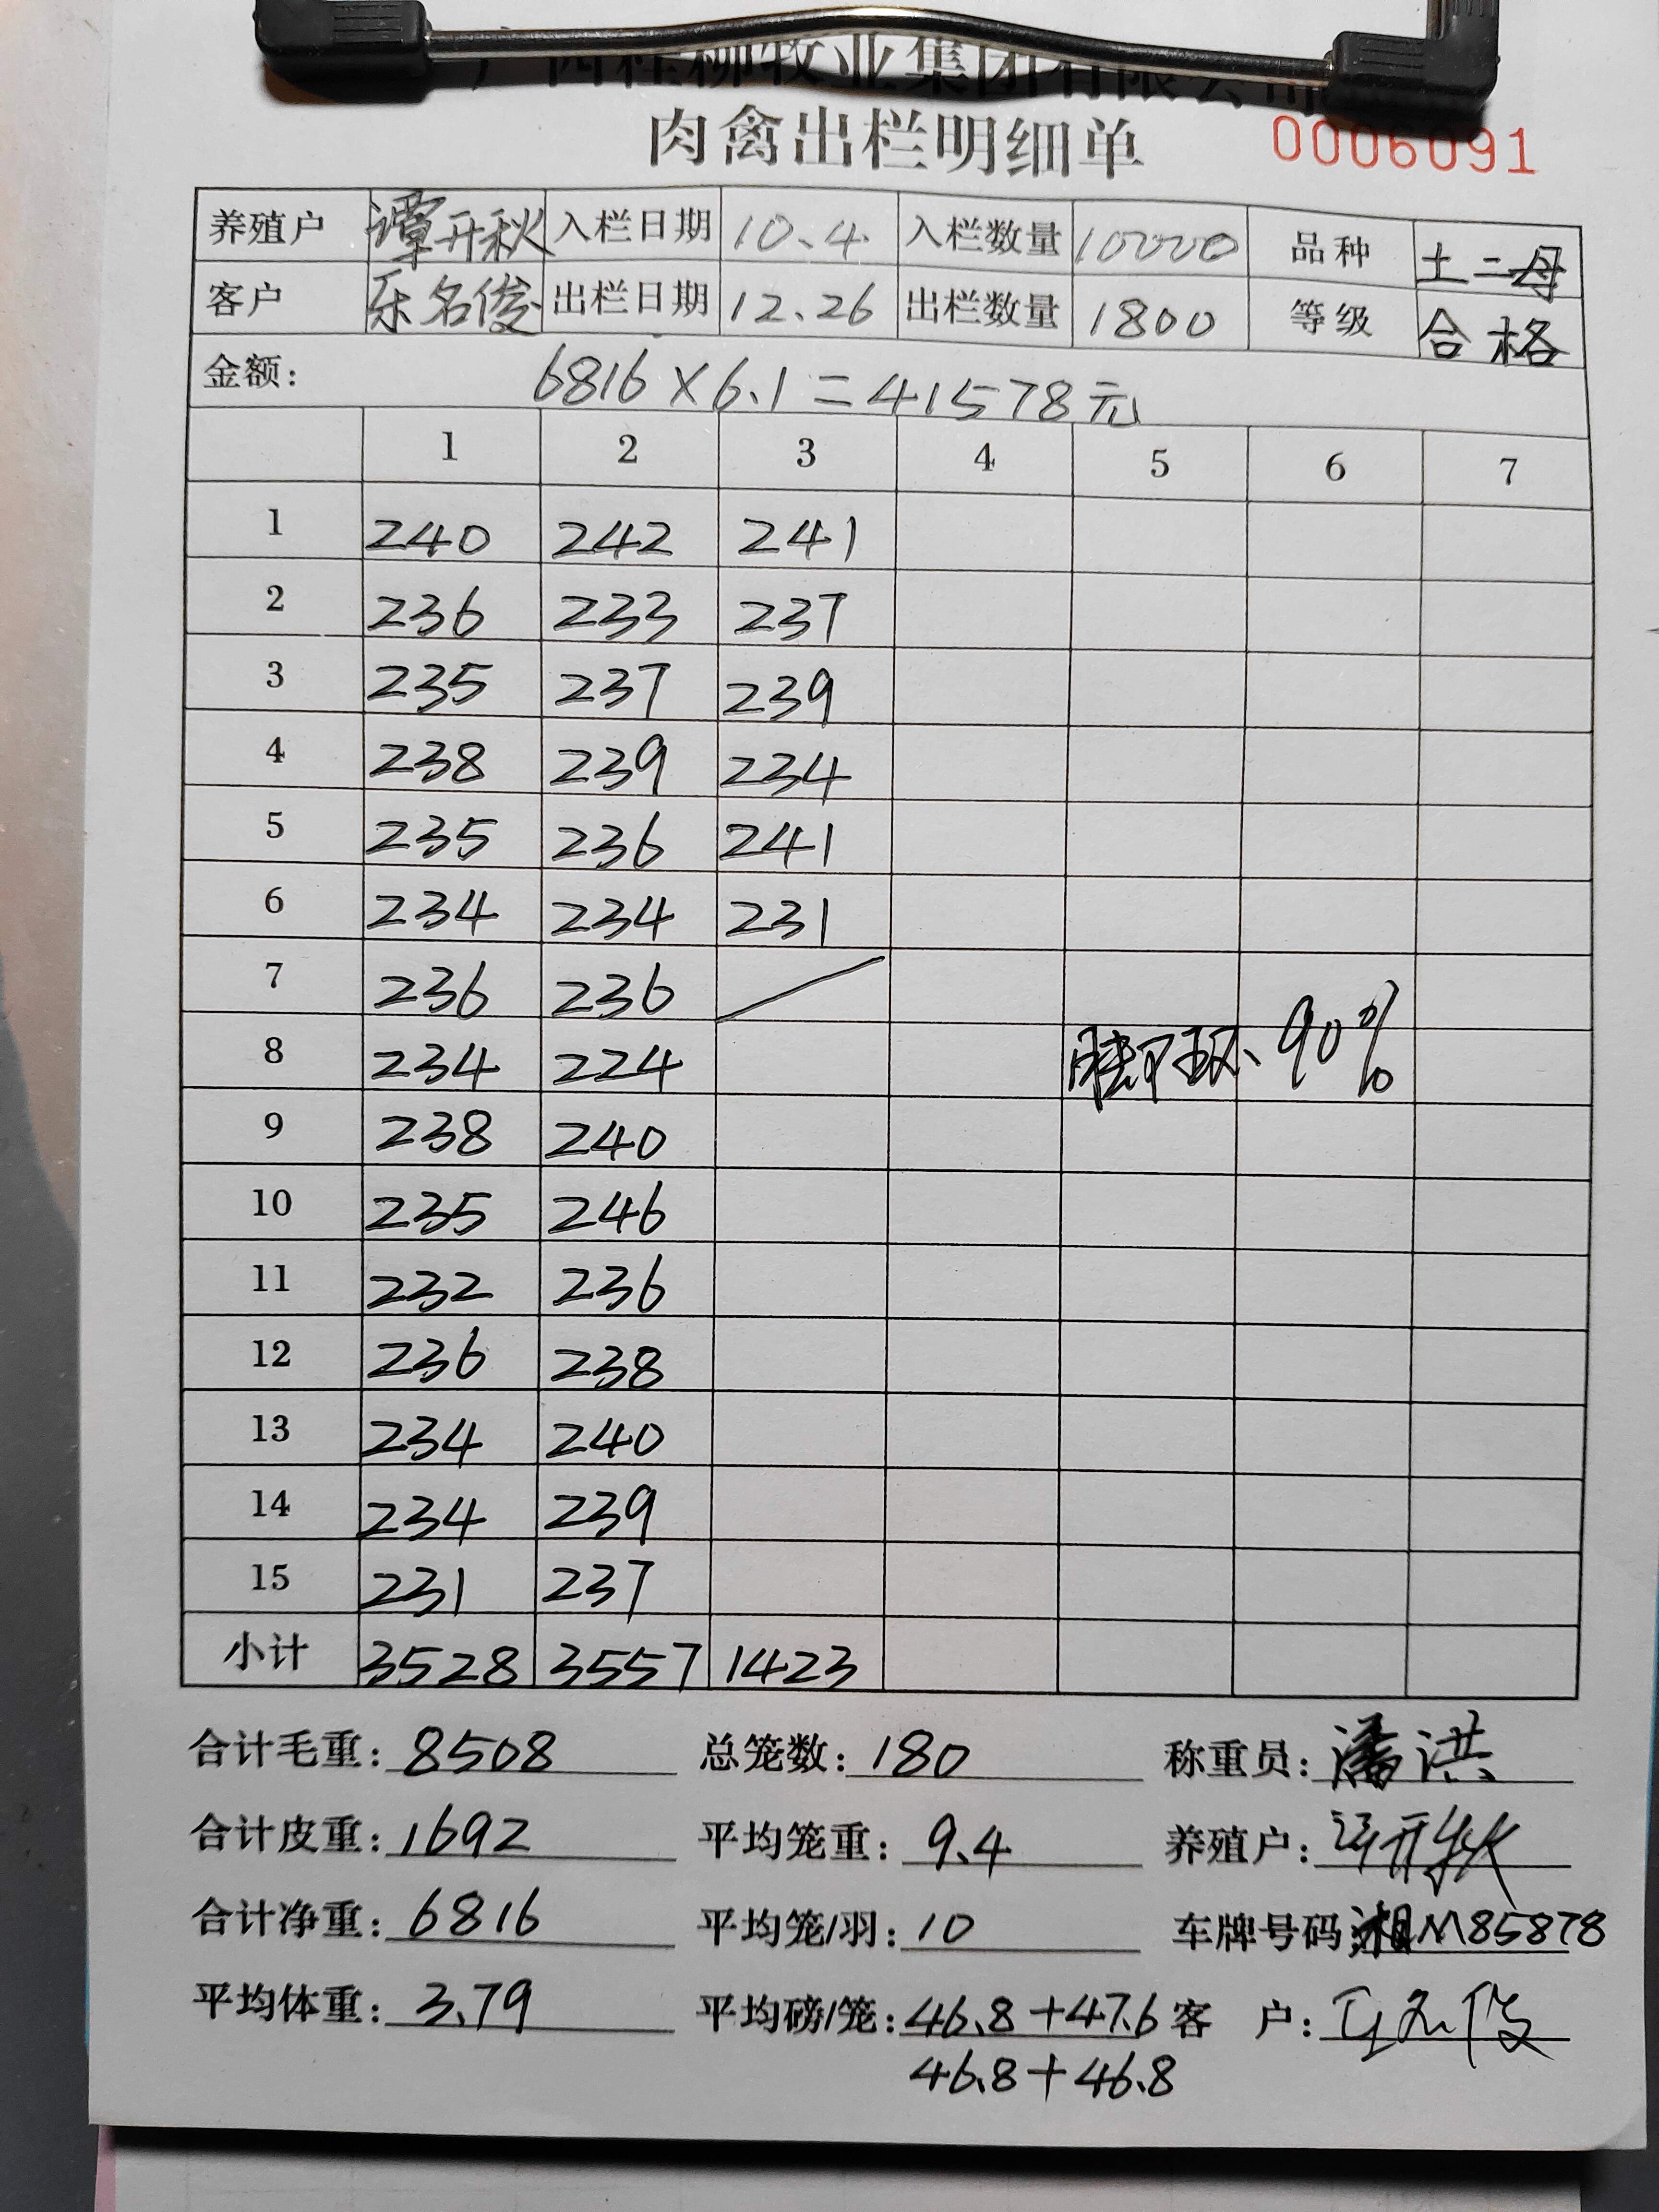 广西桂柳牧业集团有限公司
肉禽出栏明细单 0006091
养殖户 谭开秋 入栏日期 10.4 入栏数量 10000 品种 土二母
客户 乐名俊 出栏日期 12.26 出栏数量 1800 等级 合格
金额: 6816×6.1=41578元
1 2 3 4 5 6 7
1 240 242 241
2 236 233 237
3 235 237 239
4 238 239 234
5 235 236 241
6 234 234 231
7 236 236
8 234 224 脚环 90%
9 238 240
10 235 246
11 232 236
12 236 238
13 234 240
14 234 239
15 231 237
小计 3528 3557 1423
合计毛重: 8508 总笼数: 180 称重员: 潘洪
合计皮重: 1692 平均笼重: 9.4 养殖户: 谭开秋
合计净重: 6816 平均笼/羽: 10 车牌号码: 湘M85878
平均体重: 3.79 平均磅/笼: 46.8+47.6 客户:
46.8+46.8